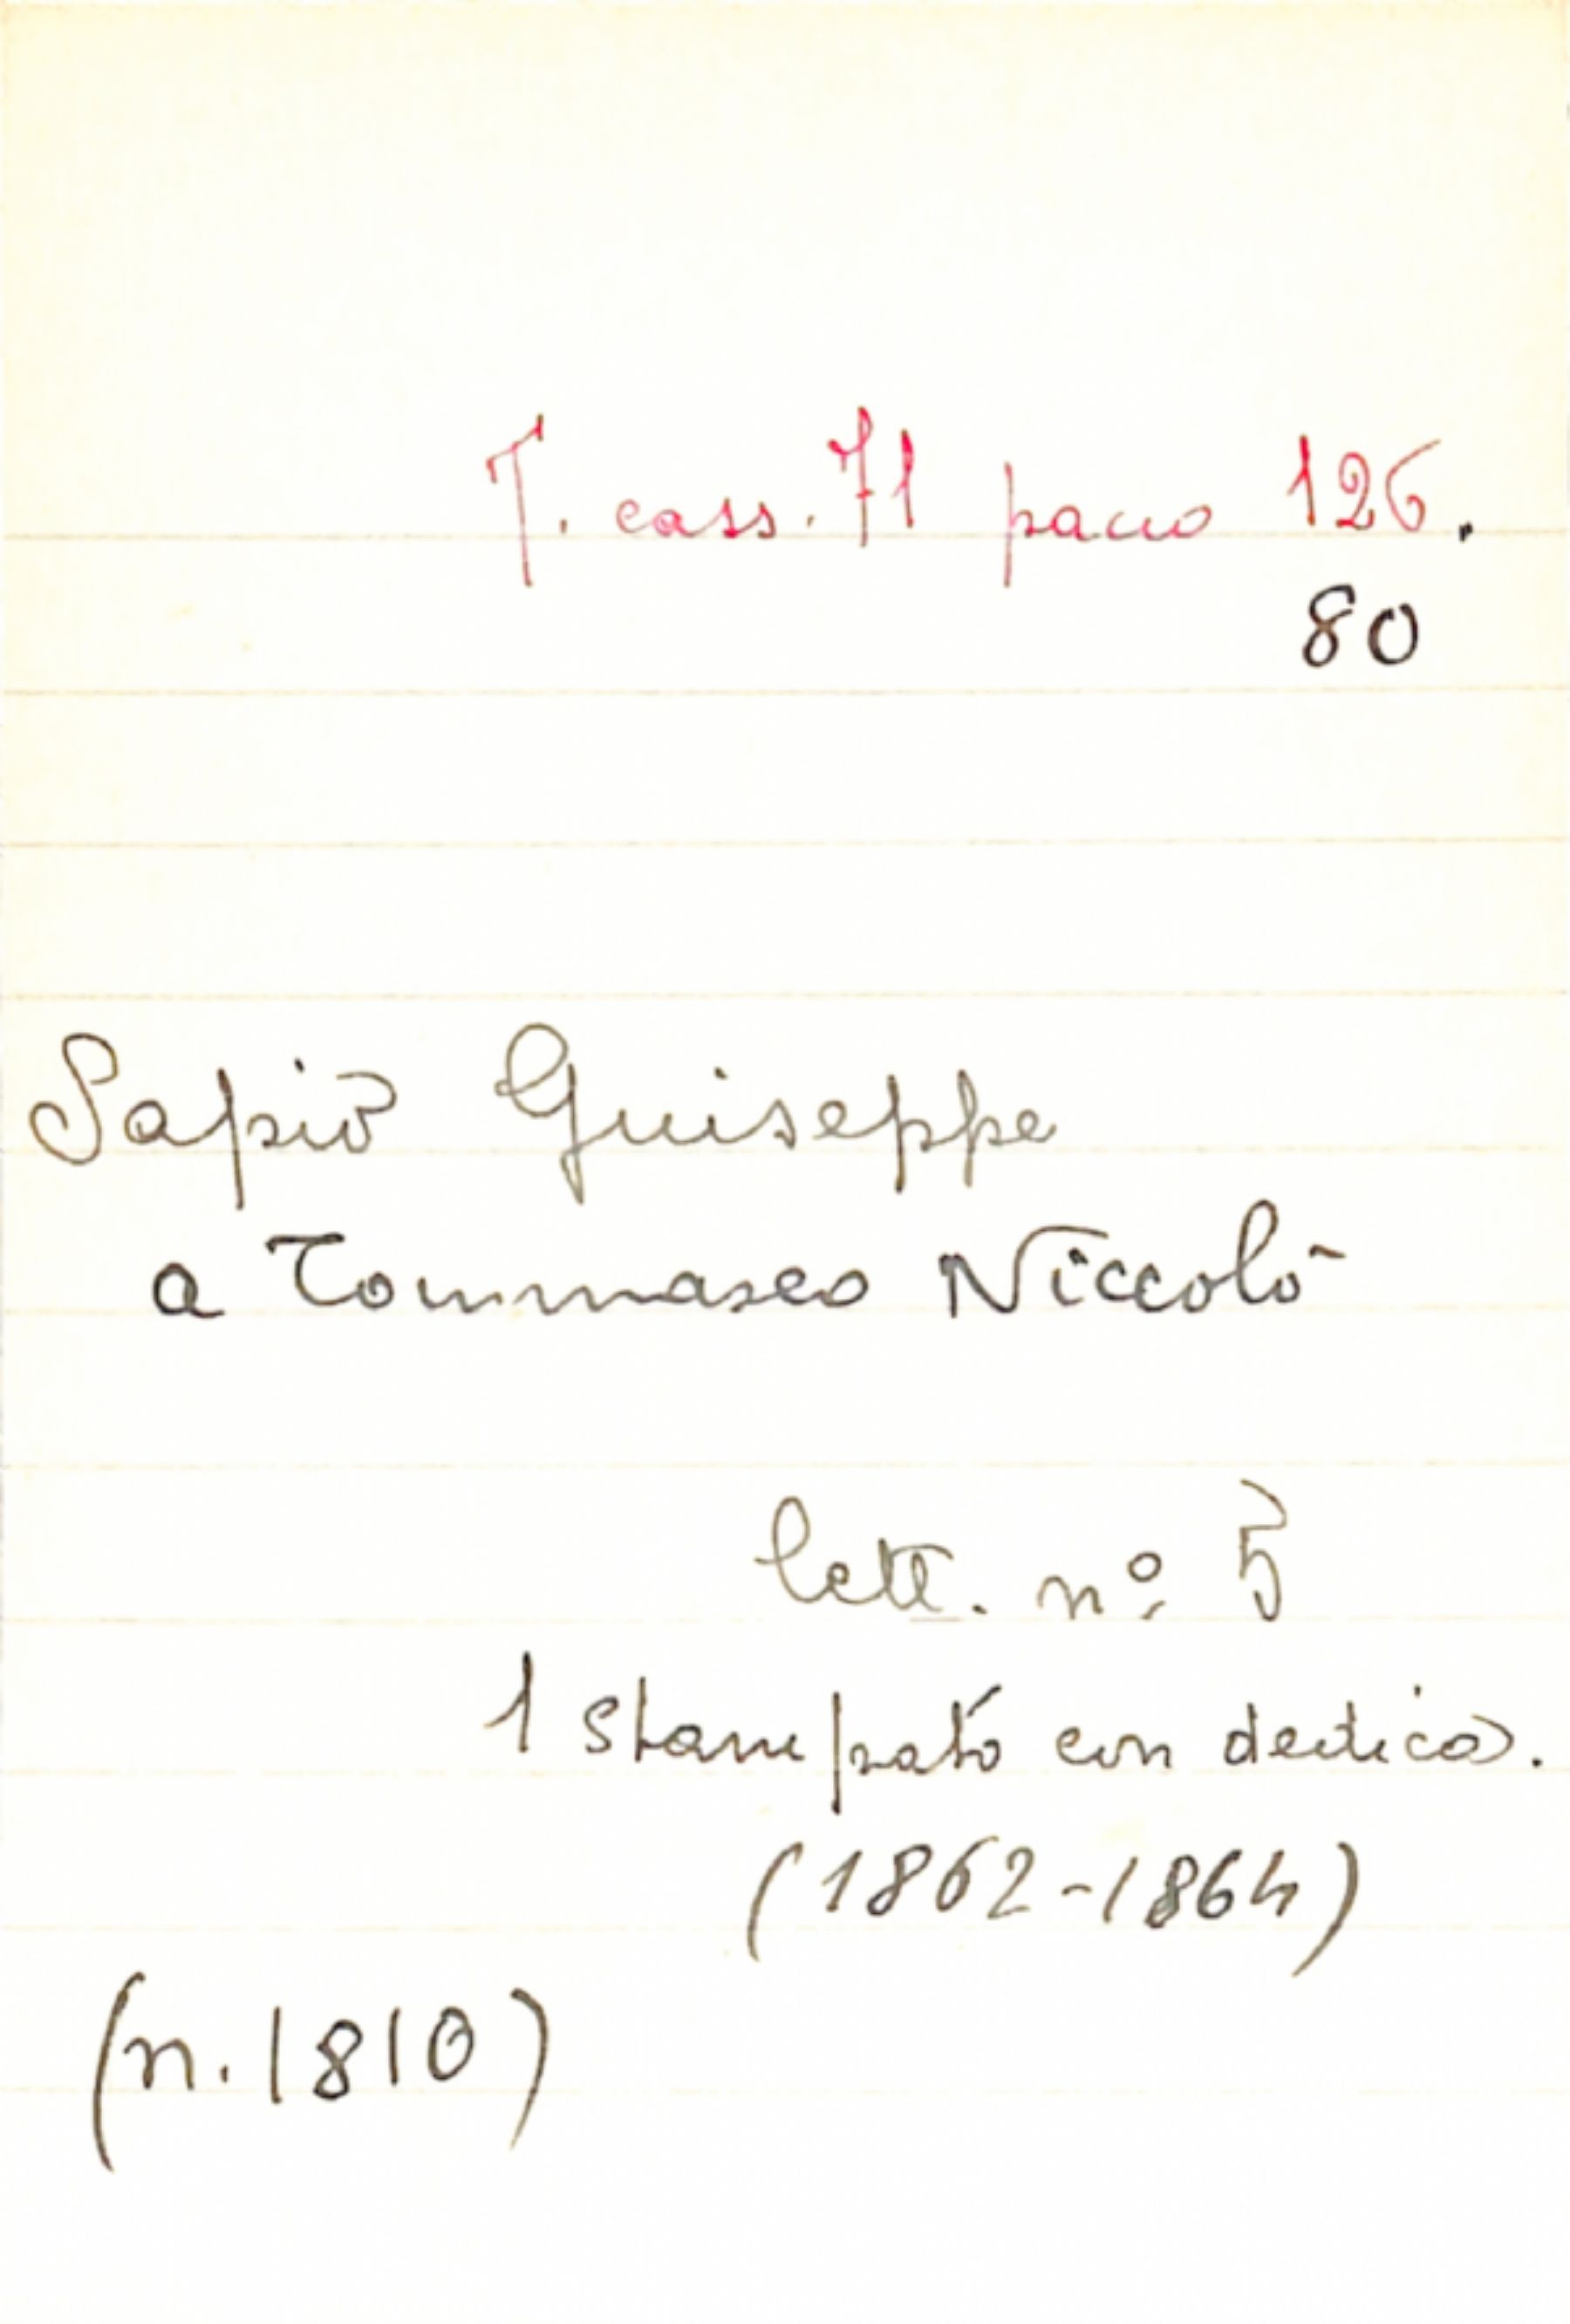 T. cass. 71 pacco 126.
80
Sapio Giuseppe
a Tommaseo Niccolò
lett. nº 5
1 stampato con dedica.
(1862-1864)
(n. 1810)